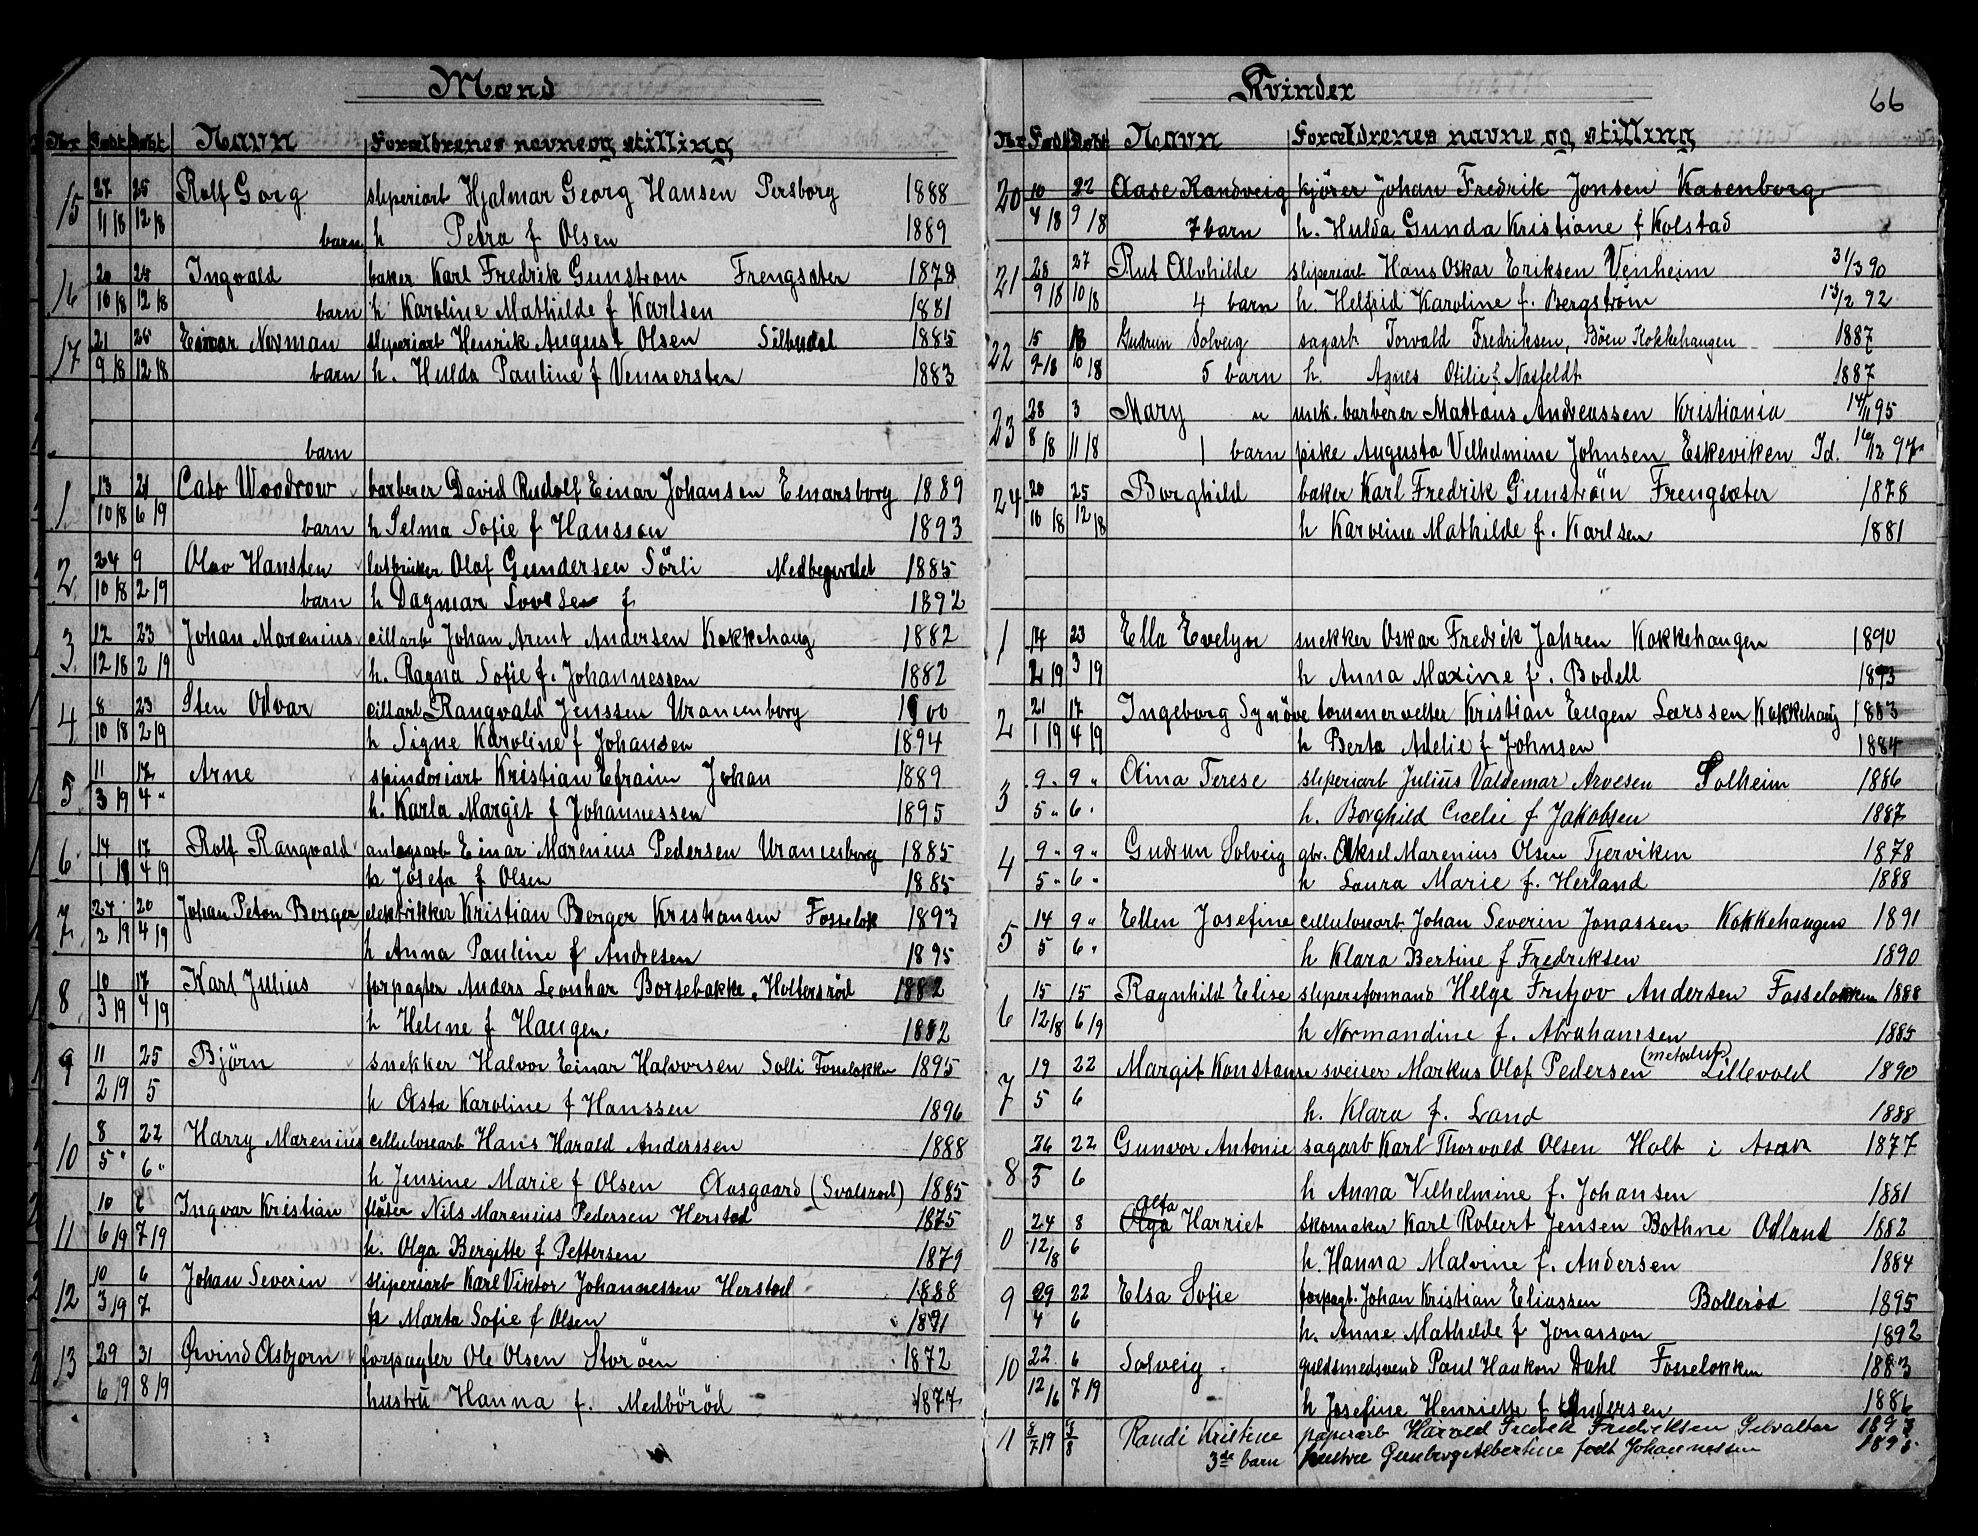 Mænd
Nr Født Døbt Navn Forældrenes navne og stilling
15 27 25 Rolf Gorg sliperiarb Hjalmar Georg Hansen Persborg 1888
11/8 12/8 barn h Petra f Olsen 1889
16 20 25 Ingvald baker Karl Fredrik Gunstrøm Frengsæter 1878
10/8 12/8 barn h Karoline Mathilde f Karlsen 1881
17 21 26 Einar Norman sliperiarb Henrik August Olsen 1885
9/8 12/8 barn h. Hulda Pauline f Vennersten 1883
barn
1 13 21 Cato Woodrow barberer David Rudolf Einar Johansen Einarsborg 1889
10/8 6/9 barn h Selma Sofie f Hansson 1893
2 24 9 Olav Hansten Olaf Gundersen Sörli 1885
10/8 2/9 barn h Dagmar f 1892
3 12 23 Johan Marenius cellarb Johan Arent Andersen Kokkehaug 1882
12/8 2/9 h. Ragna Sofie f. Johannessen 1882
4 8 23 Sten Odvar cellarb Rangvald Jenssen Uranienborg 1900
10/8 2/9 h Signe Karoline f Johansen 1894
5 11 17 Arne spinderiarb Kristian Efraim Johan 1889
3/9 4 " h. Karla Margit f Johannessen 1895
6 14 17 Rolf Rangvald anlægsarb Einar Marenius Pedersen Uranienborg 1885
1/8 4/9 h Josefa f Olsen 1885
7 27 20 Johan Peton Berger elektrikker Kristian Berger Kristiansen Fosseløk 1893
2/9 4/9 h Anna Pauline f Andresen 1895
8 10 17 Karl Julius forpagter Anders Leonhar Borsebakke, Holtersrød 1882
3/9 4/9 h Helene f Haugen 1882
9 11 25 Bjørn snekker Halvor Einar Halvorsen Solli Fosseløkken 1895
2/9 5 h Aasta Karoline f Hanssen 1896
10 8 22 Harry Marenius cellulosearb Hans Harald Anderssen 1888
5 " 6 " h Jensine Marie f Olsen Aasgaard (Svalsrød) 1885
11 10 6 Ingvar Kristian fløter Nils Marenius Pedersen Herstad 1875
6/9 7/9 h. Olga Bergitte f Pettersen 1879
12 10 6 Johan Severin sliperiarb Karl Viktor Johannessen Herstad 1888
3/9 7 h Marta Sofie f Olsen 1891
13 29 31 Øivind Asbjørn forpagter Ole Olsen Storöen 1872
6/9 8/9 hustrü Hanna f. Medbörød 1877
Kvinder 66
Nr Født Døbt Navn Forældrenes navne og stilling
20 10 22 Aase Randveig kjører Johan Fredrik Jonsen Kasenborg
4/8 9/8 7 barn h. Hulda Gunda Kristiane f Kolstad
21 28 27 Rut Alvhilde sliperiarb Hans Oskar Eriksen Venheim 31/3 90
9/8 10/8 4 barn h. Helfrid Karoline f. Bergström 13/2 92
22 15 13 Gudrun Solveig sagarb Torvald Fredriksen, Böen Kokkehaugen 1887
9/8 10/8 5 barn h. Agnes Otilie f. Næsfeldt 1887
23 28 3 Mary u unk. barberer Mattæus Andreassen Kristiania 14/11 95
8/8 11/8 1 barn pike Augusta Vilhelmine Johnsen Eskeviken Id. 10/12 97
24 20 25 Borghild baker Karl Fredrik Gunström Frengsæter 1878
10/8 12/8 h Karoline Mathilde f. Karlsen 1881
1 14 23 Ella Evelyn snekker Oskar Fredrik Jahren Kokkehaugen 1890
2/9 3/9 h Anna Maxine f. Bodell 1893
2 21 17 Ingeborg Synöve tømmervelter Kristian Eugen Larssen Kokkehaug 1883
1/9 4/9 h Berta Adelie f Johnsen 1884
3 9 " 9 " Aina Terese sliperiarb Julius Valdemar Arvesen Solheim 1886
5 " 6 " h. Borghild Cecelie f Jakobsen 1887
4 9 " 9 " Gudrun Solveig gbr. Aksel Marenius Olsen Tjerviken 1878
5 " 6 " h Laura Marie f. Herland 1888
5 14 9 " Ellen Josefine cellulosearb. Johan Severin Jonassen Kokkehaugen 1891
5 6 " h Klara Bertine f Fredriksen 1890
6 15 15 Ragnhild Elise sliperiformand Helge Fritjov Andersen Fosseløkken 1888
12/8 6/9 h Normandine f. Abrahamsen 1885
7 19 22 Margit Konstanse sveiser Markus Olaf Pedersen Lillevold 1890
5 6 h. Klara f. Land 1888
8 26 22 Gunvor Antonie sagarb Karl Thorvald Olsen Holt i Asak 1877
5 6 h Anna Vilhelmine f. Johansen 1881
Alfa
0 24 8 Olga Harriet skomaker Karl Robert Jensen Bothne Ødland 1882
12/8 6 h. Hanna Malvine f. Andersen 1884
9 29 22 Elsa Sofie forpagt. Johan Kristian Eliassen Bollerød 1895
4 6 h. Anne Mathilde f Jonasson 1892
10 22 6 Solveig guldsmedsvend Paul Haakon Dahl Fosseløkken 1883
12/16 7/9 h Josefine Henriette f Andersen 1886
11 8/7 19 3/8 Randi Kristine papirarb Harald Fredrik Fredriksen Gibraltar 1893
3de barn hustru Gunborg Albertine født Johannessen 1895